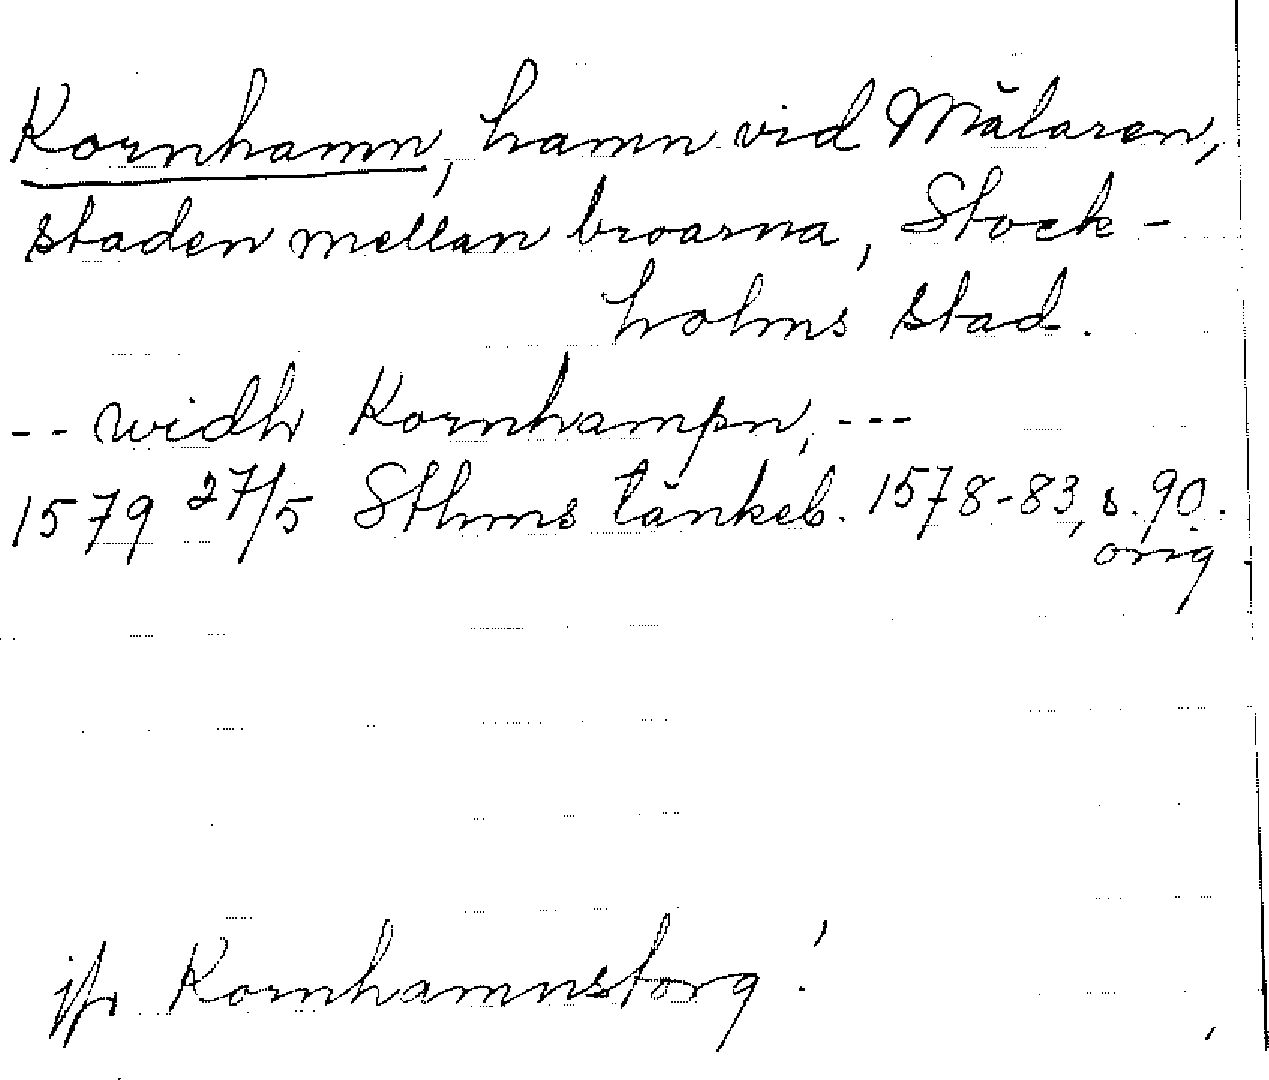 Kornhamn, hamn vid Mälaren,
staden mellan broarna, Stock-
holms stad.
-- widh Kornhampn, ---
1579 27/5 Sthms tänkeb. 1578-83, s. 90.
orig
jfr Kornhamnstorg!